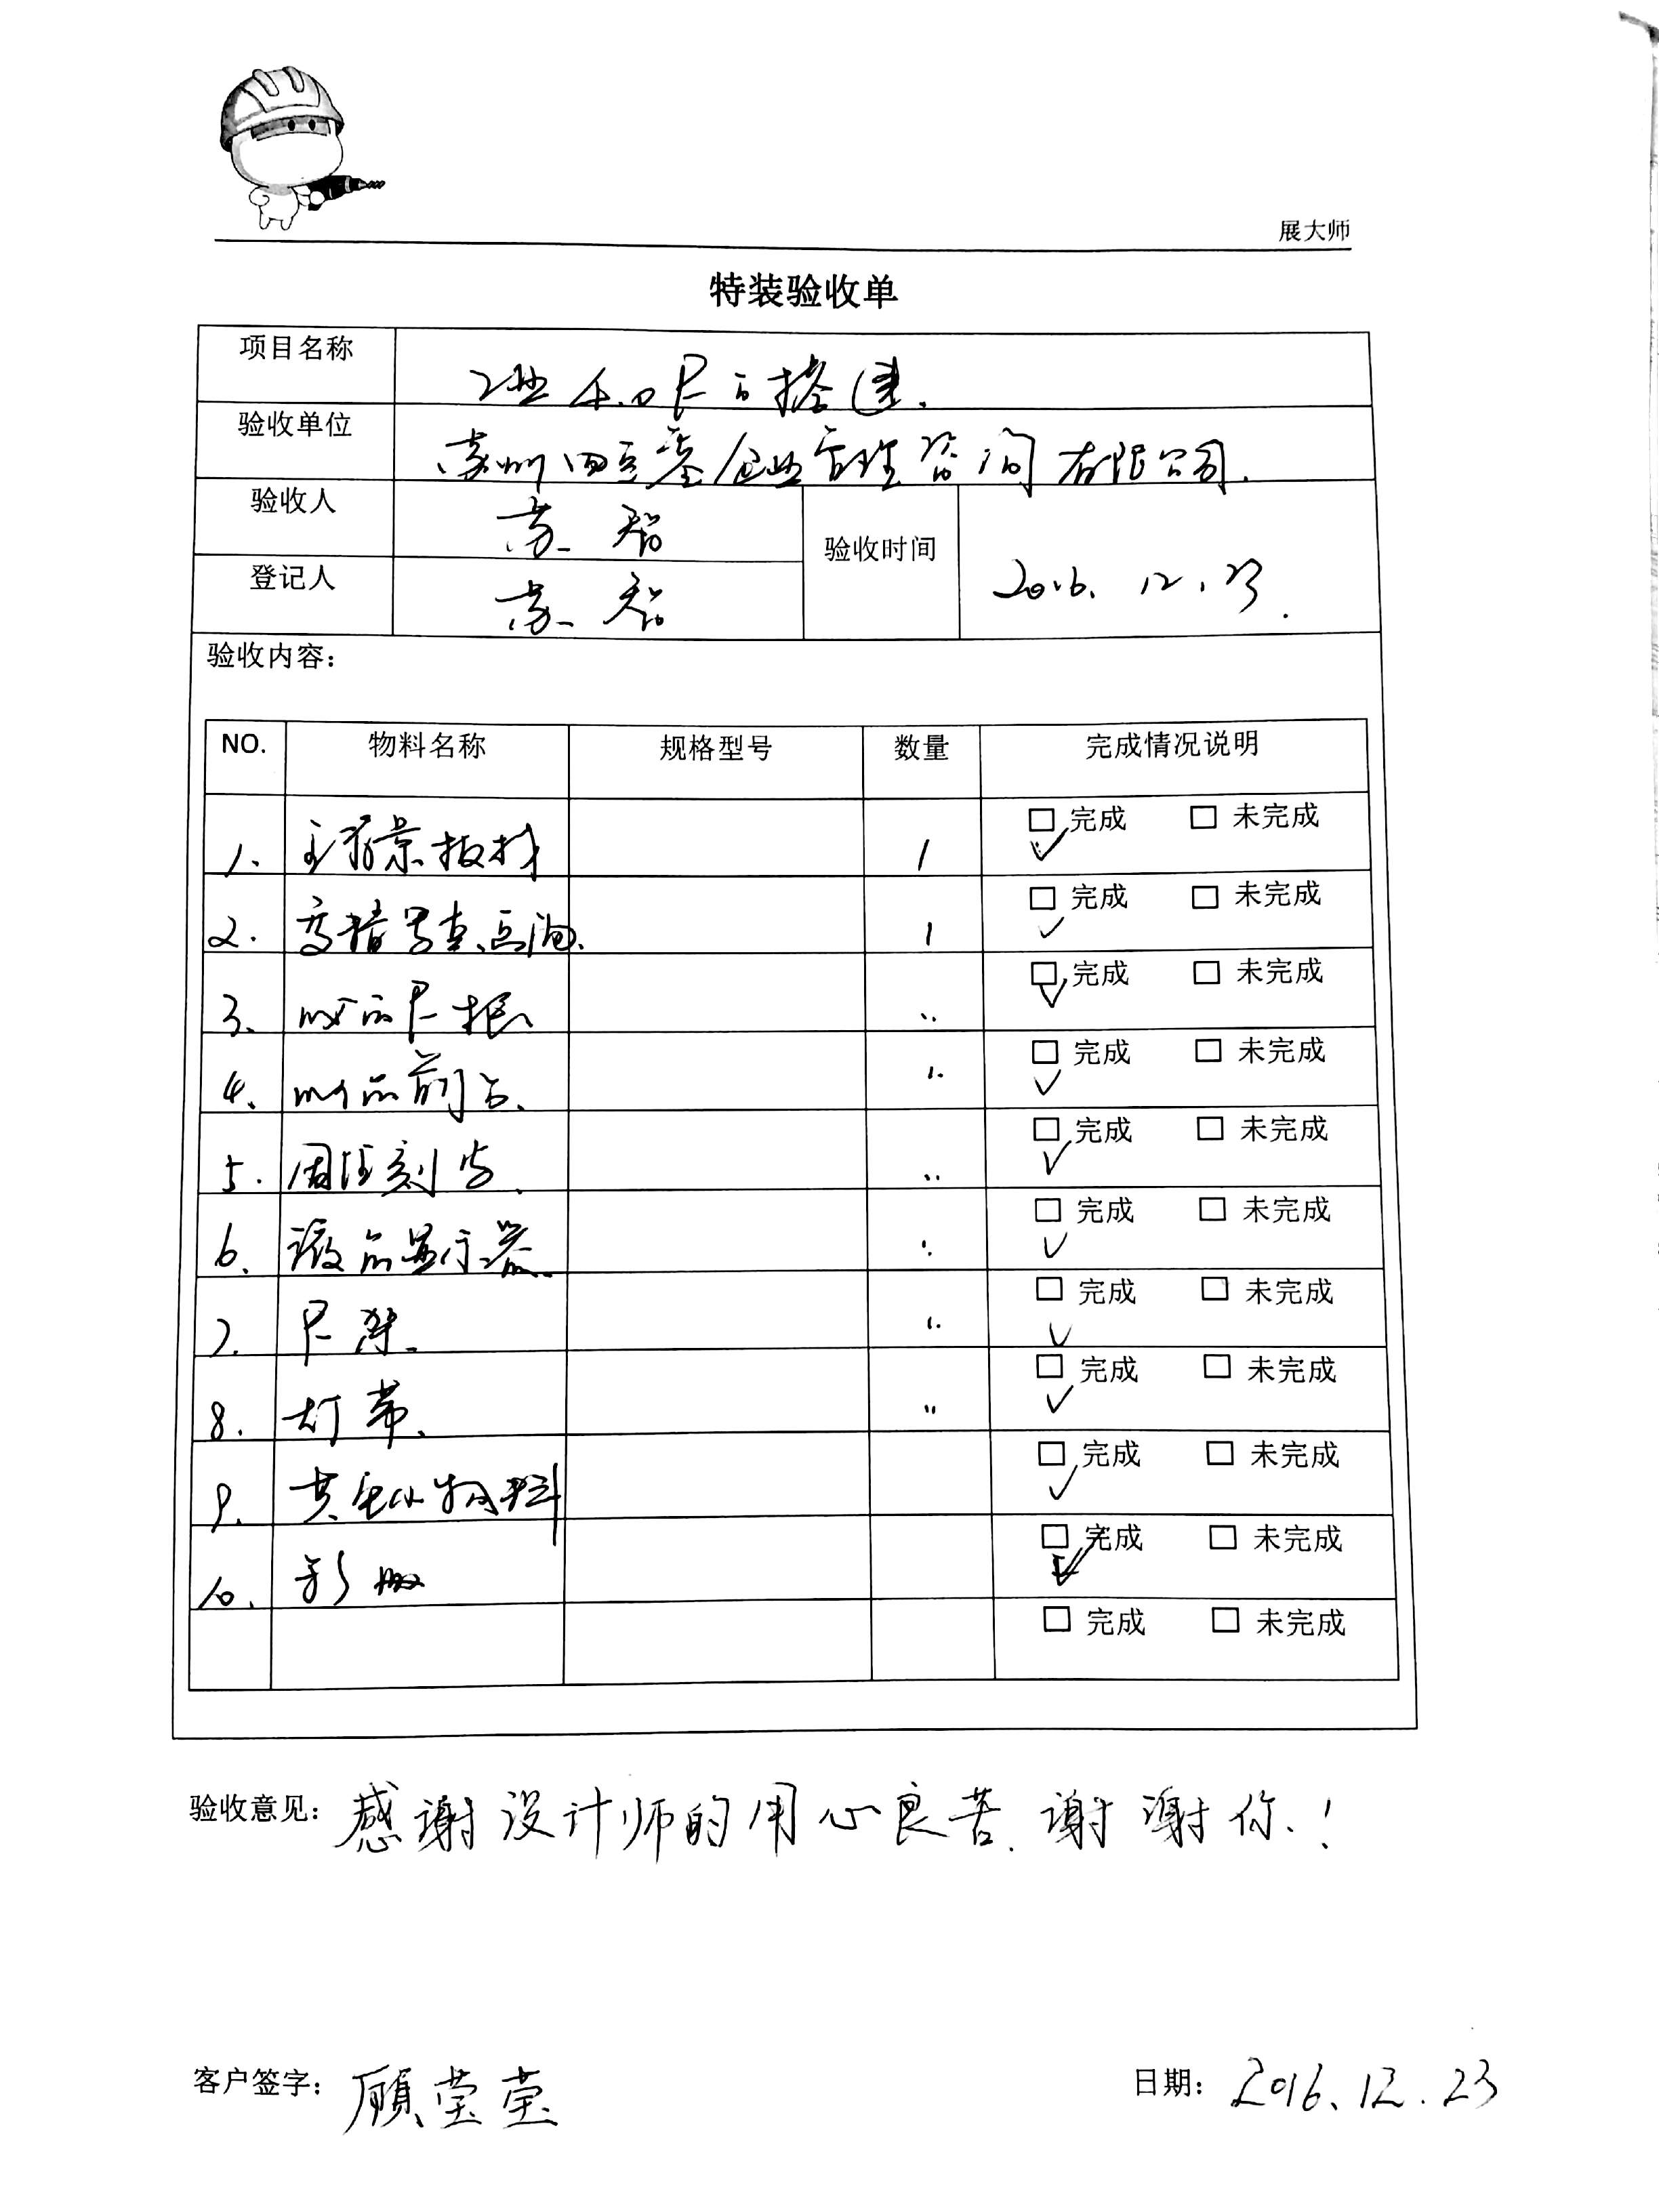 展大师
特装验收单
项目名称 工业4.0展台搭建.
验收单位 苏州 企业管理咨询有限公司.
验收人 苏
验收时间 2016. 12. 23.
登记人 苏
验收内容：
NO. 物料名称 规格型号 数量 完成情况说明
1. 主背景板材 1 □ 完成 ✓ □ 未完成
2. 高精写真、 1 □ 完成 ✓ □ 未完成
3. □ 完成 ✓ □ 未完成
4. 前台. □ 完成 ✓ □ 未完成
5. 刻字. □ 完成 ✓ □ 未完成
6. 液晶显示器. □ 完成 ✓ □ 未完成
7. □ 完成 ✓ □ 未完成
8. 灯带. " □ 完成 ✓ □ 未完成
9. 其它小物料 □ 完成 ✓ □ 未完成
10. □ 完成 ✓ □ 未完成
□ 完成 □ 未完成
验收意见：感谢设计师的用心良苦.谢谢你.！
客户签字：顾莹莹 日期：2016.12.23